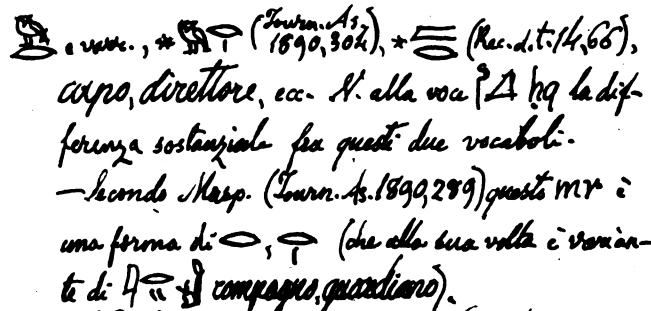 𓅓𓂋 e varr., *𓅓𓂋𓏤 (Journ. As. 1890,304), * 𓂋 (Rec. d. t. 14,66),
capo, direttore, ecc. V. alla voce 𓋾𓈎 ḥq la dif-
ferenza sostanziale fra questi due vocaboli.
— Secondo Masp. (Journ. As. 1890,289) questo mr è
una forma di 𓂋, 𓂋𓏤 (che alla sua volta è varian-
te di 𓂋𓏭 compagno, guardiano).